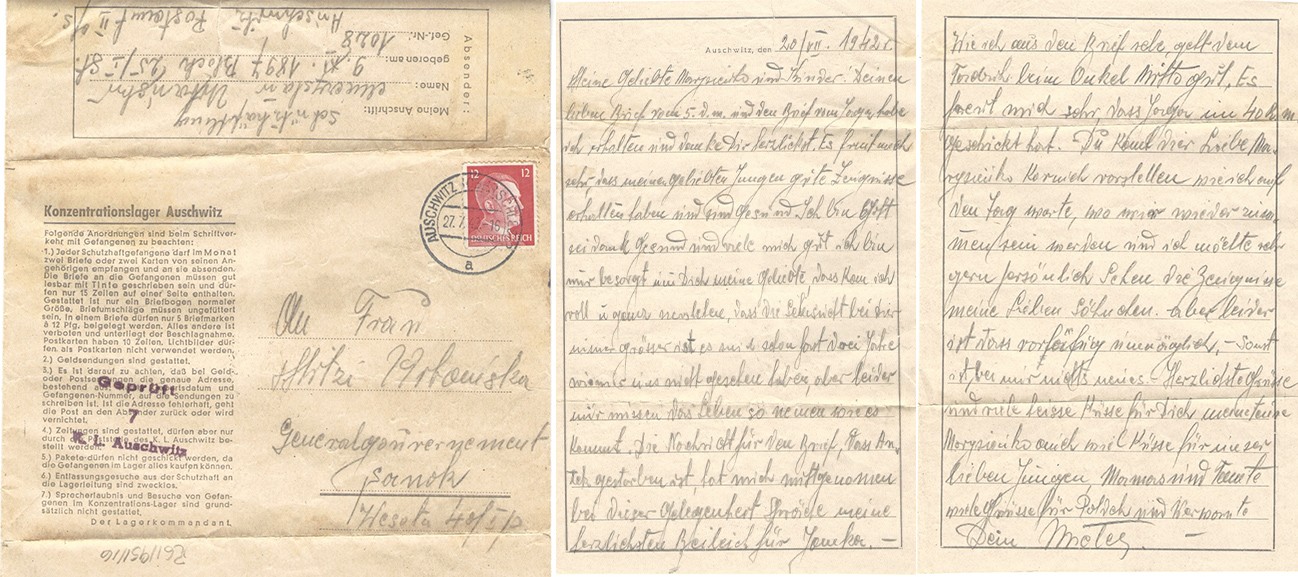 Absender:
Meine Anschrift:
Schutzhäftling
Name:
geboren am: 9. XI. 1897 Block 25/I St.
Gef.-Nr. 1028
Auschwitz Postamt II O/S.
AUSCHWITZ
27.7.
a
12 12
DEUTSCHES REICH
Konzentrationslager Auschwitz
Folgende Anordnungen sind beim Schriftver-
kehr mit Gefangenen zu beachten:
1.) Jeder Schutzhaftgefangene darf im Monat
zwei Briefe oder zwei Karten von seinen An-
gehörigen empfangen und an sie absenden.
Die Briefe an die Gefangenen müssen gut
lesbar mit Tinte geschrieben sein und dür-
fen nur 15 Zeilen auf einer Seite enthalten.
Gestattet ist nur ein Briefbogen normaler
Größe, Briefumschläge müssen ungefüttert
sein. In einem Briefe dürfen nur 5 Briefmarken
à 12 Pfg. beigelegt werden. Alles andere ist
verboten und unterliegt der Beschlagnahme.
Postkarten haben 10 Zeilen. Lichtbilder dür-
fen als Postkarten nicht verwendet werden.
2.) Geldsendungen sind gestattet.
3.) Es ist darauf zu achten, daß bei Geld-
oder Postsendungen die genaue Adresse,
bestehend aus
Gefangenen-Nummer, auf die Sendungen zu
schreiben ist. Ist die Adresse fehlerhaft, geht
die Post an den Absender zurück oder wird
vernichtet.
4.) Zeitungen sind gestattet, dürfen aber nur
durch die Poststelle des K. L. Auschwitz be-
stellt werden.
5.) Pakete dürfen nicht geschickt werden, da
die Gefangenen im Lager alles kaufen können.
6.) Entlassungsgesuche aus der Schutzhaft an
die Lagerleitung sind zwecklos.
7.) Sprecherlaubnis und Besuche von Gefan-
genen im Konzentrations-Lager sind grund-
sätzlich nicht gestattet.
Der Lagerkommandant.
Geprüft
7
K. L. Auschwitz
An Frau
Urbańska
Generalgouvernement
Sanok
Auschwitz, den 20/VII. 1942 r.
Meine Geliebte Marysieńko und Kinder! Deinen
lieben Brief vom 5. d.m. und den Brief vom habe
ich erhalten und danke Dir herzlichst. Es freut mich
sehr dass meiner geliebten Jungen gute Zeugnisse
erhalten haben und sind gesund. Ich bin Gott
sei dank Gesund und gut ich bin
nur besorgt um Dich meine Geliebte, dass kann ich
voll u ganz verstehen, dass die Sehnsucht bei
immer grösser ist es sind schon fast drei Jahre
wie wir uns nicht gesehen haben, aber leider
wir müssen das Leben so nemen wie es
kommt. Die Nachricht für den Brief, dass An-
tek gestorben ist, hat mich mitgenomen
bei dieser Gelegenheit meine
herzlichsten Beileid für Janka. —
Wie ich aus den Brief sehe, geht dem
beim Onkel Witto gut, Es
freut mich sehr, dass im 40 R.M
geschickt hat. – Du kannst dier Liebe Ma-
rysieńko vorstellen wie ich auf
den Tag warte, wo wir wieder zusa-
men sein werden und ich möchte sehr
gern persönlich sehen die Zeugnisse
meine lieben Söhnchen. aber leider
ist dass vorläufig unmöglich, – Sonst
ist bei mir nichts neues. – Herzlichste Grüsse
und viele heisse Küsse für Dich meine
Marysieńko auch viel Küsse für unser
lieben Jungen, Mamas und Tante
viele Grüsse für und Verwante
Dein